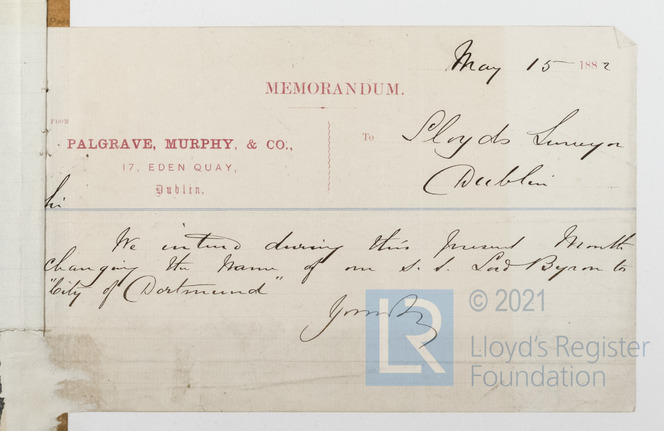 May 15 1882
MEMORANDUM.
FROM
PALGRAVE, MURPHY, & CO.,
17, EDEN QUAY,
Dublin.
To
Lloyds Surveyor
Dublin
Sir
We intend during this present Month
changing the Name of our S. S. Lord Byron to
"City of Dortmund"
© 2021
LR
Lloyd's Register
Foundation